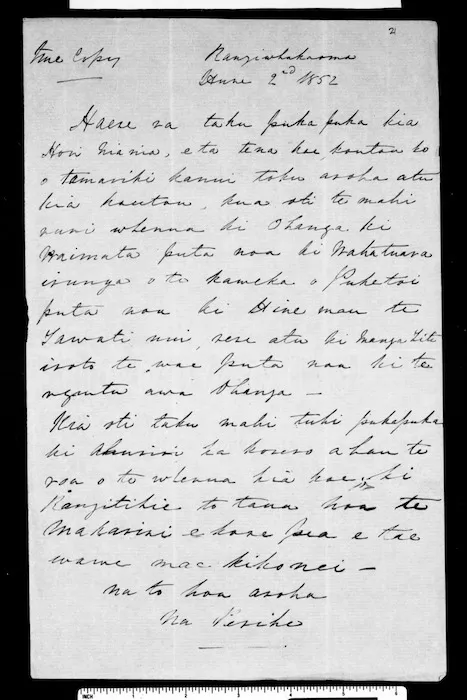 2
True Copy
Rangiwhakaoma
June 2nd 1852
Haere ra taku pukapuka kia
Hori Niania, e ta tena koe, koutou ko
o tamariki kanui toku aroha atu
kia koutou, kua oti te mahi
ruri whenua ki Ohanga ki
Waimata puta noa ki Wahatuara
irunga o te kaweka o Puketoi
puta noa ki Hine mau te
Tawati nui, rere atu ki Manga Titi
iroto te wae puta noa ki te
ngutu awa Ohanga —
Kia oti taku mahi tuhi pukapuka
ki Ahuriri ka korero ahau te
roa o te whenua kia koe, ki
Rangitikie to taua hoa te
Makarini e kore pea e tae
wawe mae kikonei —
na to hoa aroha
Na Perihe
INCH 1 2 3 4 5